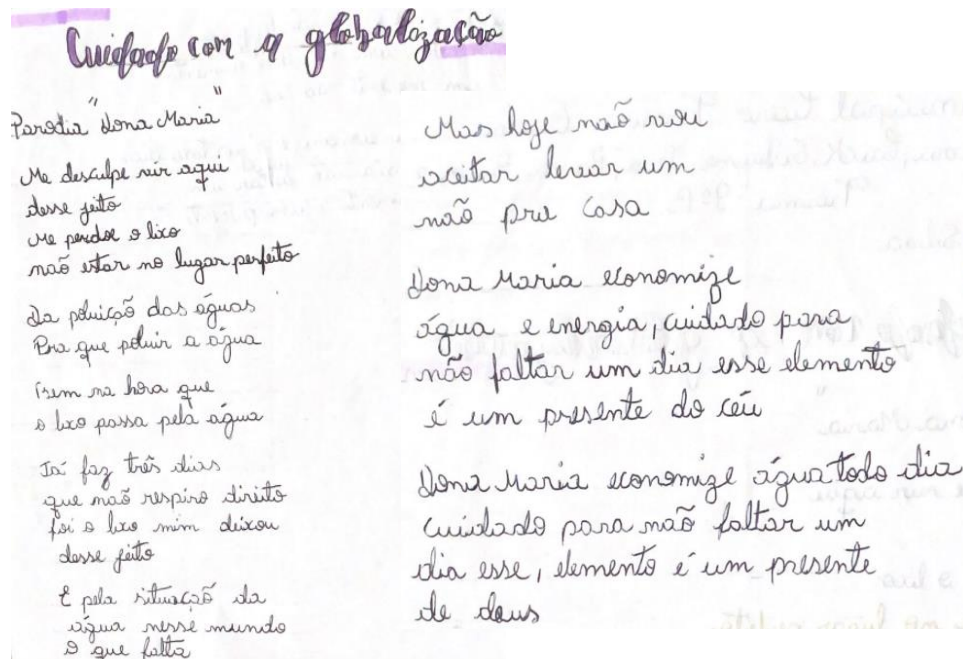 Cuidado com a globalização
Parodia "dona Maria"
Me desculpe vir aqui
desse jeito
Me perdoe o lixo
não estar no lugar perfeito
Da poluição das águas
Pra que poluir a água
Bem na hora que
o lixo passa pela água
Já faz três dias
que não respiro direito
foi o lixo mim deixou
desse jeito
E pela situação da
água nesse mundo
o que falta
Mas hoje não vou
aceitar levar um
não pra casa
Dona Maria economize
água e energia, cuidado para
não faltar um dia esse elemento
é um presente do céu
Dona Maria economize água todo dia
cuidado para não faltar um
dia esse, elemento é um presente
de deus